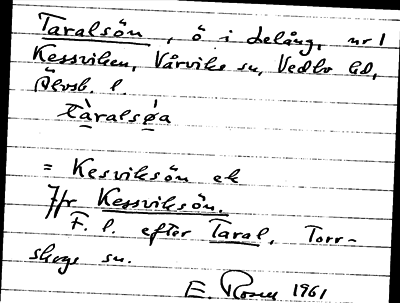 Taralsön, ö i Lelång, nr 1
Kessviken, Vårviks sn, Vedbo hd,
Älvsb. l.
tàralsø̀a
= Kesviksön ek
Jfr Kessviksön.
F. l. efter Taral, Torr-
skogs sn.
E. Rosell 1961